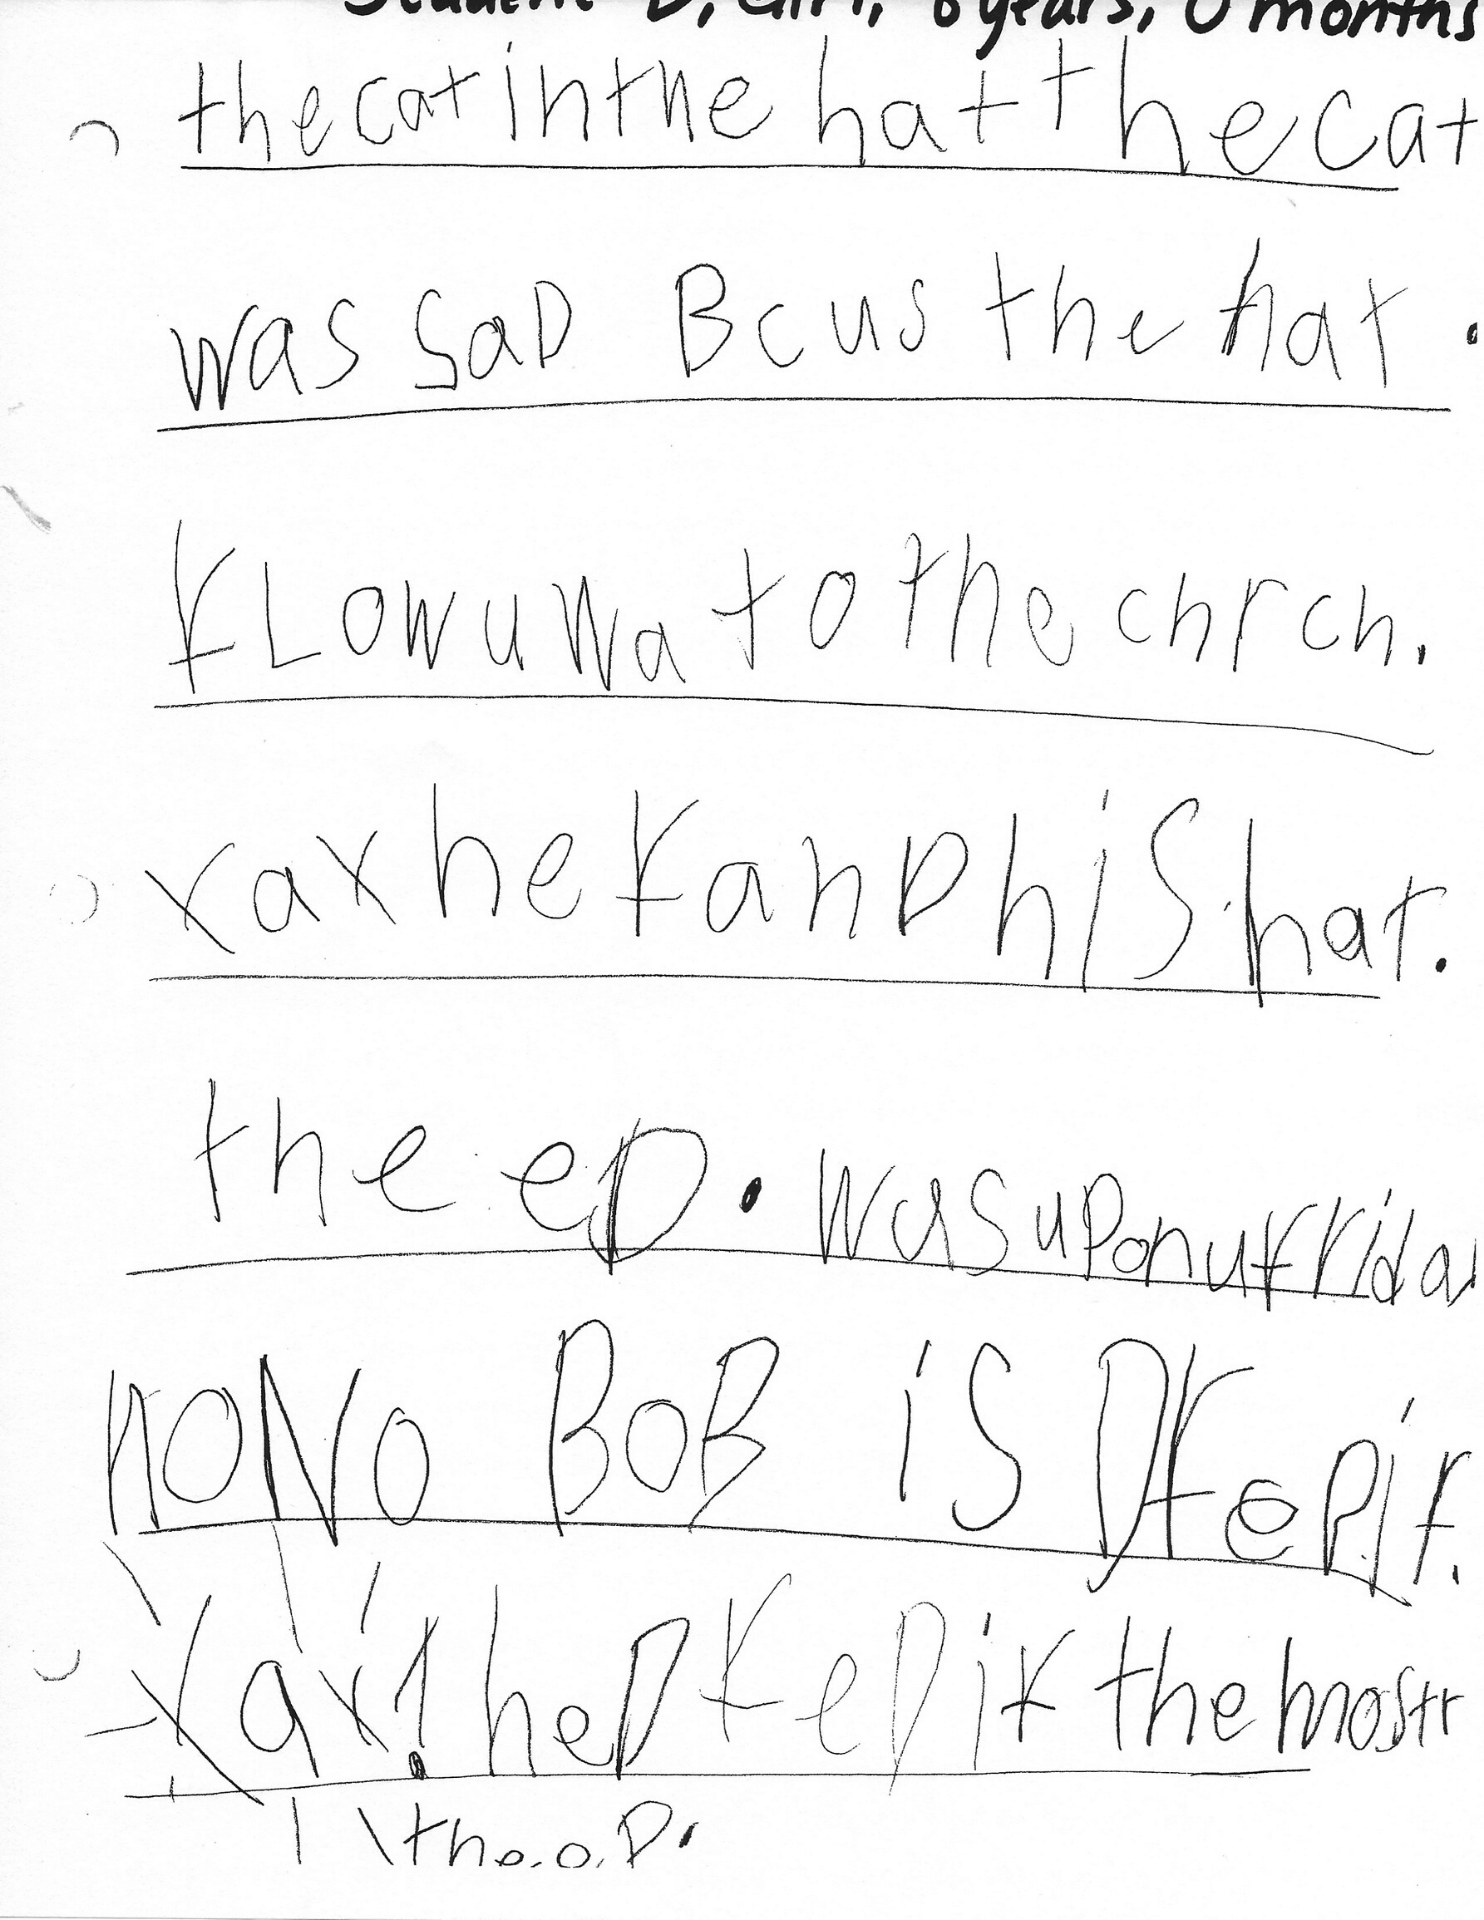 Student D, Girl, 6 years, 0 months
thecatinthe hat thecat
was saD Bcus the hat.
FLowuwa to the chrch.
xax he FanD his hat.
the eD. wasuPonufrida
noNo BoB is DFePit.
xax! heD FePit the mostr
the.e.D.